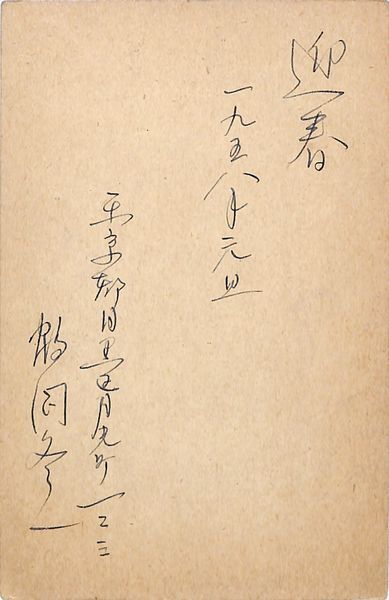 迎春
一九五八年元旦
東京都目黒区月光町一二三
鶴岡冬一